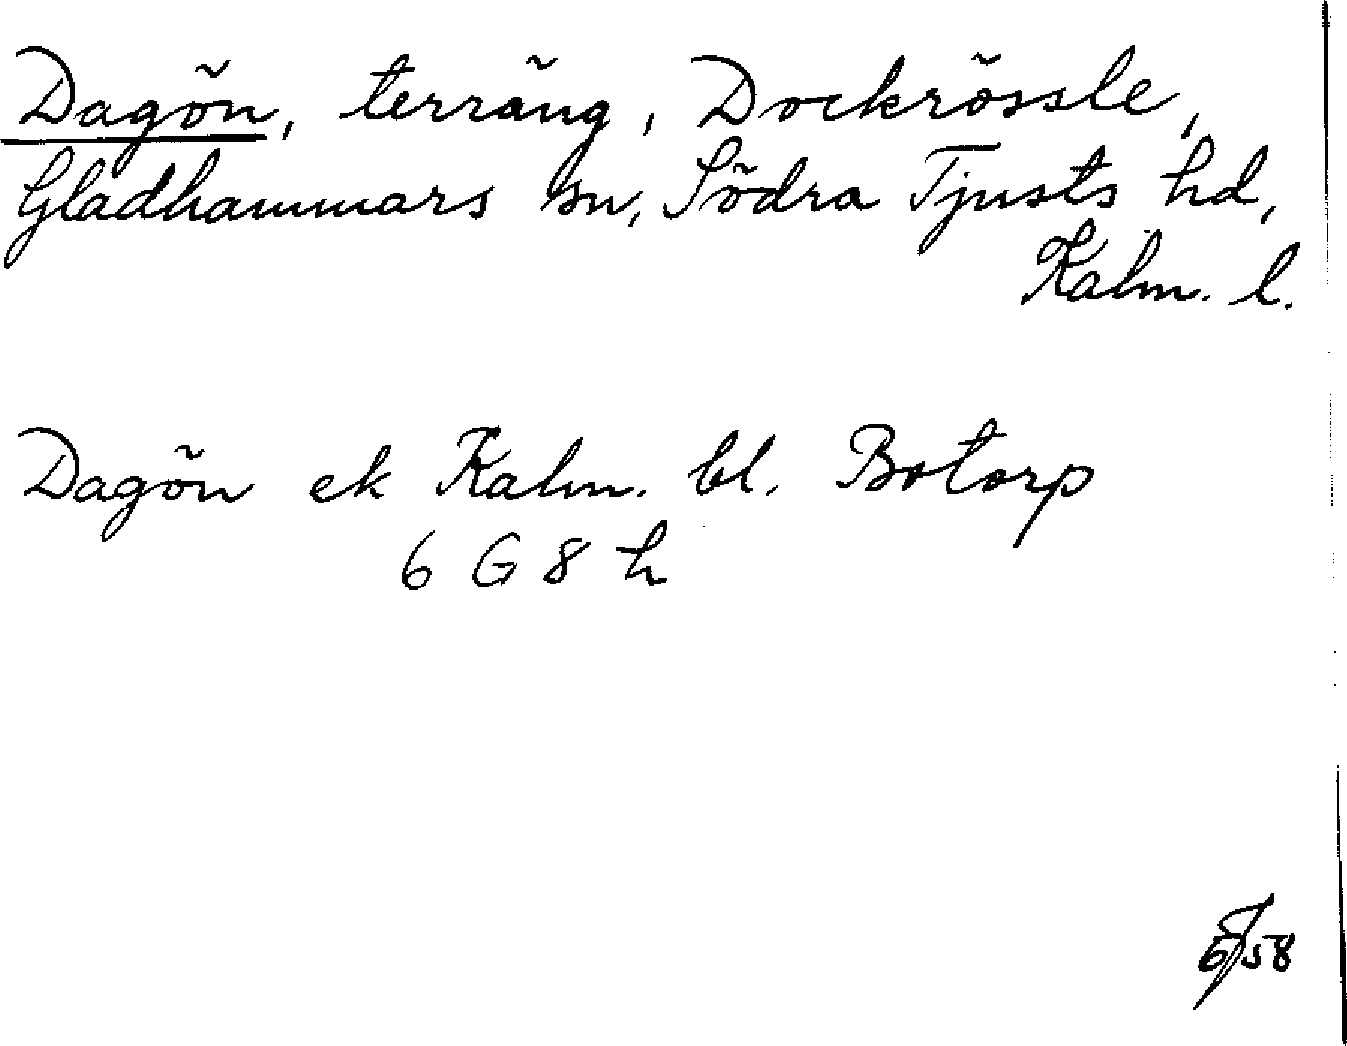 Dagön, terräng, Dockrössle,
Gladhammars sn, Södra Tjusts hd,
Kalm. l.
Dagön ek Kalm. bl. Botorp
6 G 8 h